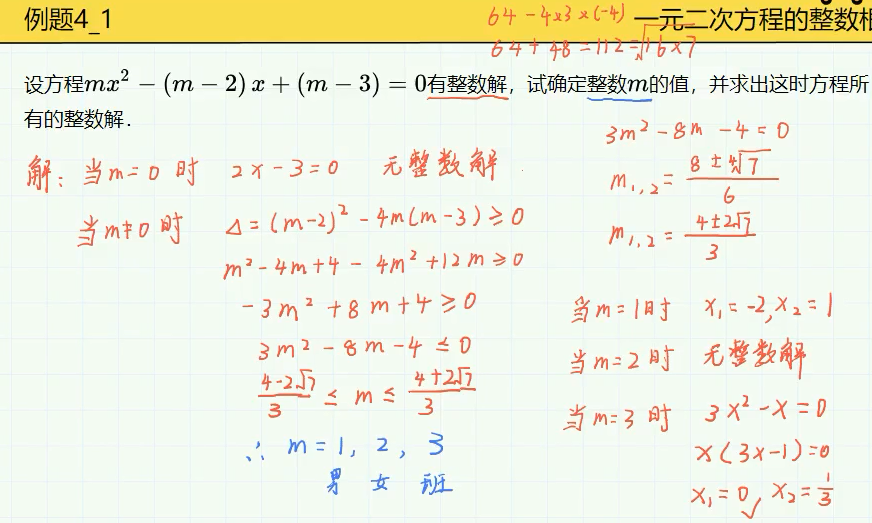 例题4_1
64-4×3×(-4)
一元二次方程的整数根
64+48=112=√16×7
设方程mx²-(m-2)x+(m-3)=0有整数解,试确定整数m的值,并求出这时方程所
有的整数解.
解:当m=0时 2x-3=0 无整数解
当m≠0时 Δ=(m-2)²-4m(m-3)≥0
m²-4m+4-4m²+12m≥0
-3m²+8m+4≥0
3m²-8m-4≤0
(4-2√7)/3≤m≤(4+2√7)/3
∴ m=1, 2, 3
男 女 班
3m²-8m-4=0
m₁,₂=(8±4√7)/6
m₁,₂=(4±2√7)/3
当m=1时 x₁=-2,x₂=1
当m=2时 无整数解
当m=3时 3x²-x=0
x(3x-1)=0
x₁=0✓ x₂=1/3